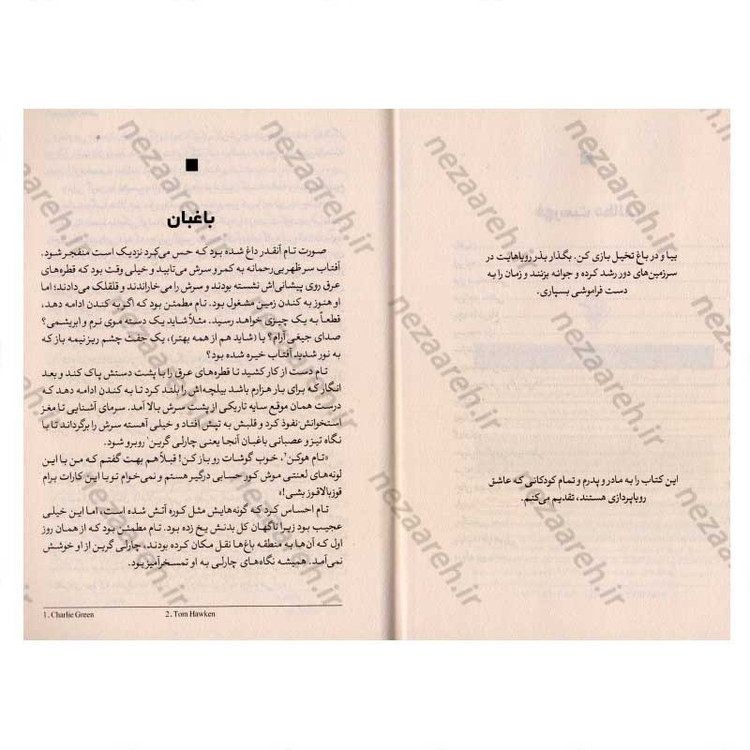 بیا و در باغ تخیل بازی کن. بگذار بذر رویاهایت در
سرزمین‌های دور رشد کرده و جوانه بزنند و زمان را به
دست فراموشی بسپاری.
این کتاب را به مادر و پدرم و تمام کودکانی که عاشق
رویاپردازی هستند، تقدیم می‌کنم.
باغبان
صورت تام آنقدر داغ شده بود که حس می‌کرد نزدیک است منفجر شود.
آفتاب سر ظهر بی‌رحمانه به کمر و سرش می‌تابید و خیلی وقت بود که قطره‌های
عرق روی پیشانی‌اش نشسته بودند و سرش را می‌خاراندند و قلقلک می‌دادند؛ اما
او هنوز به کندن زمین مشغول بود. تام مطمئن بود که اگر به کندن ادامه دهد،
قطعاً به یک چیزی خواهد رسید. مثلاً شاید یک دسته موی نرم و ابریشمی؟
صدای جیغی آرام؟ یا (شاید هم از همه بهتر)، یک جفت چشم ریز نیمه باز که
به نور شدید آفتاب خیره شده بود؟
تام دست از کار کشید تا قطره‌های عرق را با پشت دستش پاک کند و بعد
انگار که برای بار هزارم باشد بیلچه‌اش را بلند کرد تا به کندن ادامه دهد که
درست همان موقع سایه تاریکی از پشت سرش بالا آمد. سرمای آشنایی تا مغز
استخوانش نفوذ کرد و قلبش به تپش افتاد و خیلی آهسته سرش را برگرداند تا با
نگاه تیز و عصبانی باغبان آنجا یعنی چارلی گرین۱ روبرو شود.
«تام هوکن۲، خوب گوشات رو باز کن! قبلاً هم بهت گفتم که من با این
لونه‌های لعنتی موش کور حسابی درگیر هستم و نمی‌خوام تو با این کارات برام
قوز بالا قوز بشی!»
تام احساس کرد که گونه‌هایش مثل کوره آتش شده است، اما این خیلی
عجیب بود زیرا ناگهان کل بدنش یخ زده بود. تام مطمئن بود که از همان روز
اول که آن‌ها به منطقه باغ‌ها نقل مکان کرده بودند، چارلی گرین از او خوشش
نمی‌آمد. همیشه نگاه‌های چارلی به او تمسخرآمیز بود.
1. Charlie Green 2. Tom Hawken
nezaareh.ir
nezaareh.ir
nezaareh.ir
nezaareh.ir
nezaareh.ir
nezaareh.ir
nezaareh.ir
nezaareh.ir